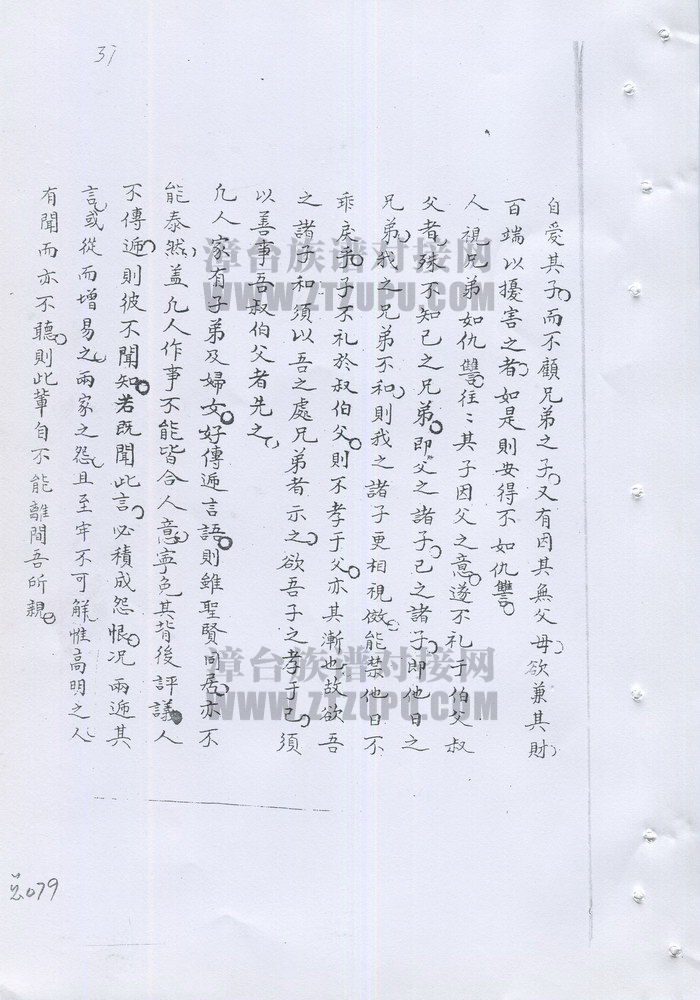 37
自爱其子而不顧兄弟之子又有因其無父母欲兼其財
百端以擾害之者如是則安得不如仇讐
人視兄弟如仇讐往々其子因父之意遂不礼于伯父叔
父者殊不知己之兄弟即父之諸子己之諸子即他日之
兄弟我之兄弟不和則我之諸子更相視傚能禁他日不
乖戾乎子不礼於叔伯父則不孝于父亦其漸也故欲吾
之諸子和須以吾之處兄弟者示之欲吾子之孝于己須
以善事吾叔伯父者先之
凢人家有子弟及婦女好傳遞言語則雖聖賢同居亦不
能泰然盖凢人作事不能皆合人意寧免其背後評議人
不傳遞則彼不聞知若既聞此言必積成怨恨况兩遞其
言或從而增易之兩家之怨且至牢不可觧惟高明之人
有聞而亦不聽則此輩自不能離間吾所親
漳台族谱对接网
WWW.ZTZUPU.COM
漳台族谱对接网
WWW.ZTZUPU.COM
079